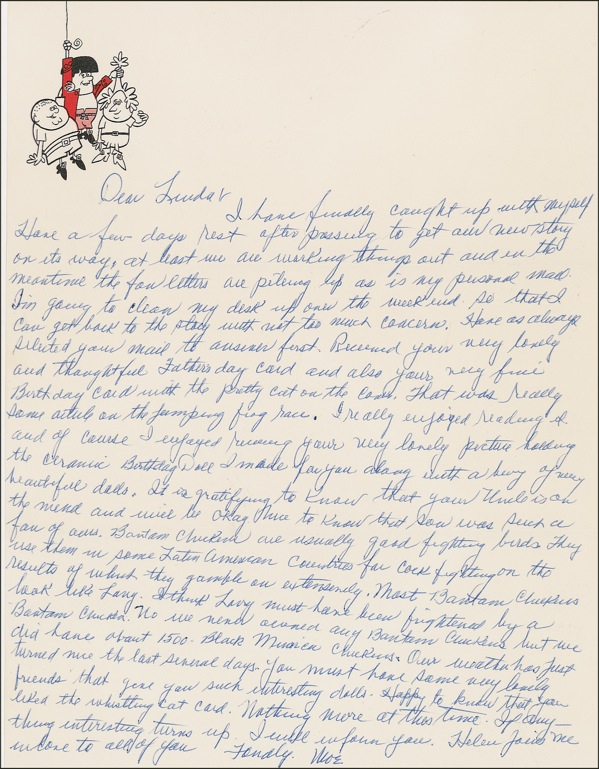 Dear Linda:
I have finally caught up with myself
Have a few days rest after passing to get our new story
on its way, at least we are working things out and in the
meantime the fan letters are piling up as is my personal mail.
I'm going to clean my desk up over the weekend so that I
can get back to the story with not too much concern. Have as always
selected your mail to answer first. Received your very lovely
and thoughtful Fathers day card and also your very fine
Birthday card with the pretty cat on the cover. That was really
some article on the jumping frog race. I really enjoyed reading it
and of course I enjoyed receiving your very lovely picture holding
the ceramic Birthday Doll I made for you along with a bevy of very
beautiful dolls. It is gratifying to know that your Uncle is on
the mend and will be okay. Nice to know that Son was such a
fan of ours. Bantam Chickens are usually good fighting birds. They
use them in some Latin American Countries for cock fighting on the
results of which they gamble on extensively. Most Bantam Chickens
look like Larry. I think Larry must have been frightened by a
Bantam Chicken. No we never owned any Bantam Chickens but we
did have about 1500 Black Minorca Chickens. Our weather has just
turned nice the last several days. You must have some very lovely
friends that give you such interesting dolls. Happy to know that you
liked the whistling cat card. Nothing more at this time. If any-
thing interesting turns up. I will inform you. Helen joins me
in love to all of you Fondly. Moe